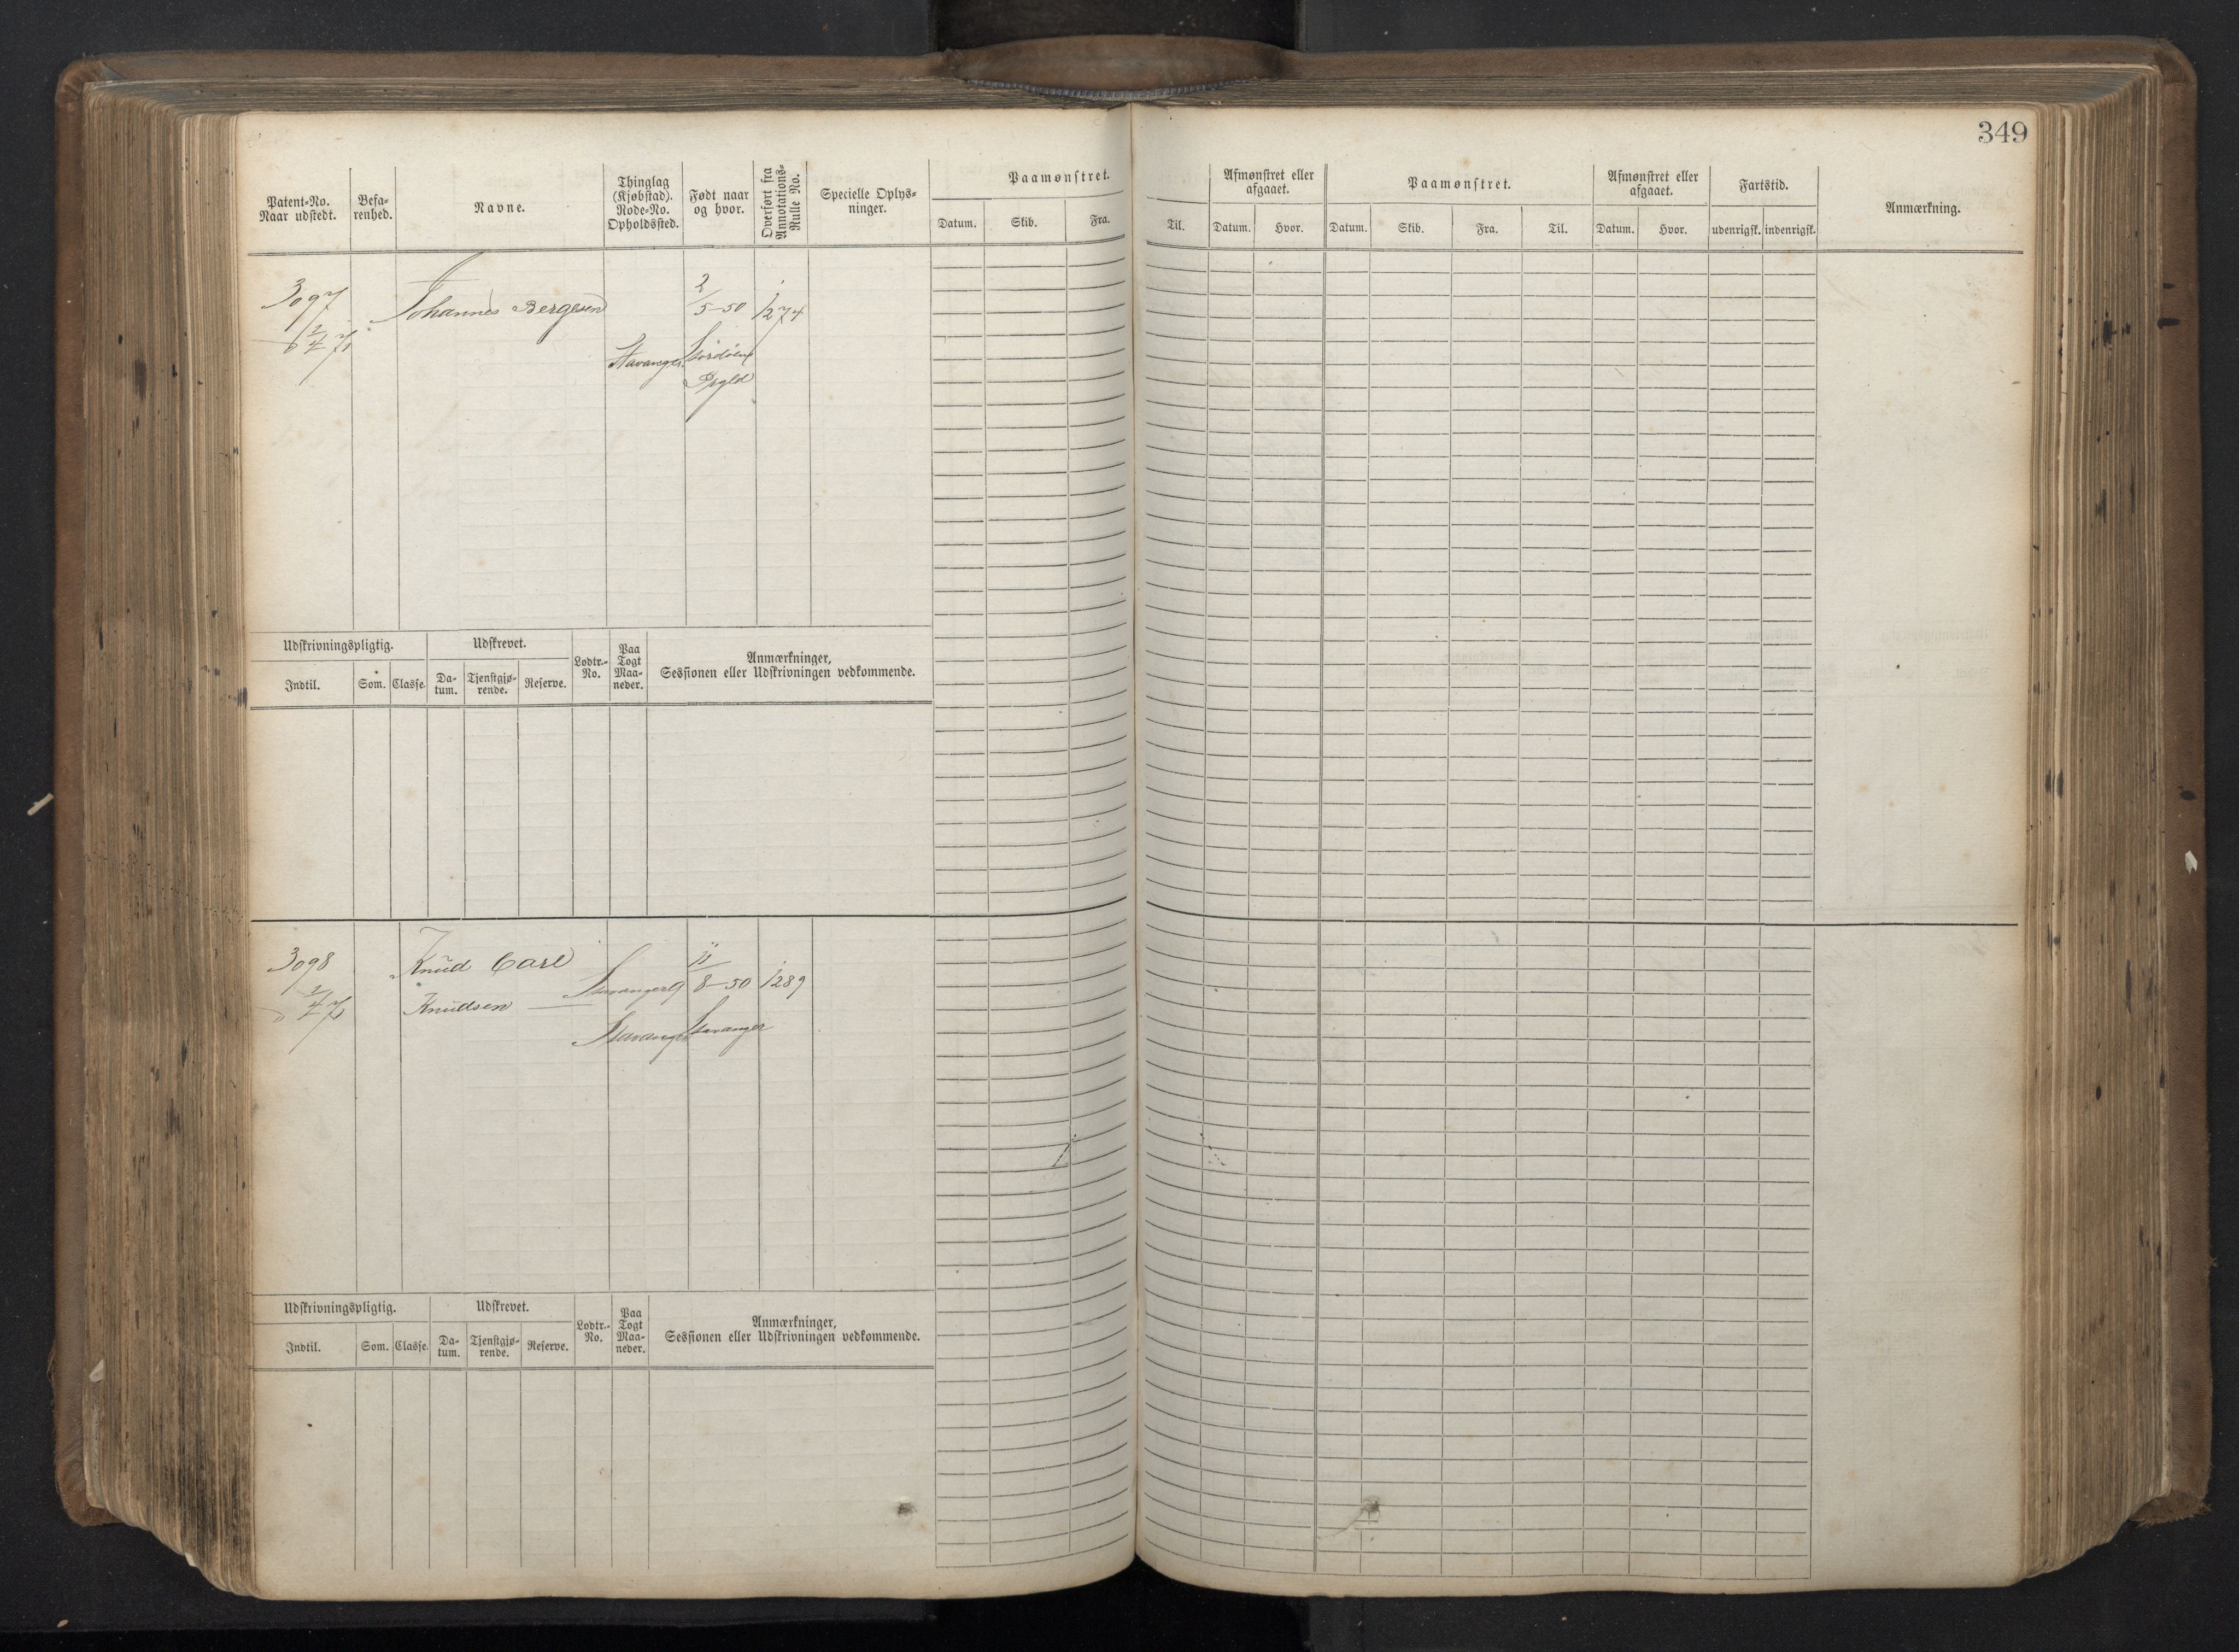 349
Patent-No.
Naar udstedt.
Befa-
renhed.
Navne.
Thinglag
(Kjøbstad).
Rode-No.
Opholdssted.
Født naar
og hvor.
Overført fra
Annotations-
Rulle No.
Specielle Oplys-
ninger.
Paamønstret.
Datum. Skib. Fra.
Til.
Afmønstret eller
afgaaet.
Datum. Hvor.
Paamønstret.
Datum. Skib. Fra. Til.
Afmønstret eller
afgaaet.
Datum. Hvor.
Fartstid.
udenrigsk. indenrigsk.
Anmærkning.
3097
Johannes Bergesen
2
5-50
1274
2
4 71
Stavanger
Prgld
Udskrivningspligtig.
Indtil. Som. Classe.
Udskrevet.
Da-
tum.
Tjenstgjø-
rende.
Reserve.
Lodtr.-
No.
Paa
Togt
Maa-
neder.
Anmærkninger,
Sessionen eller Udskrivningen vedkommende.
3098
Knud Carl
Knudsen
Stavanger 9
11
8-50
1289
2
4 71
Stavanger
Stavanger
Udskrivningspligtig.
Indtil. Som. Classe.
Udskrevet.
Da-
tum.
Tjenstgjø-
rende.
Reserve.
Lodtr.-
No.
Paa
Togt
Maa-
neder.
Anmærkninger,
Sessionen eller Udskrivningen vedkommende.